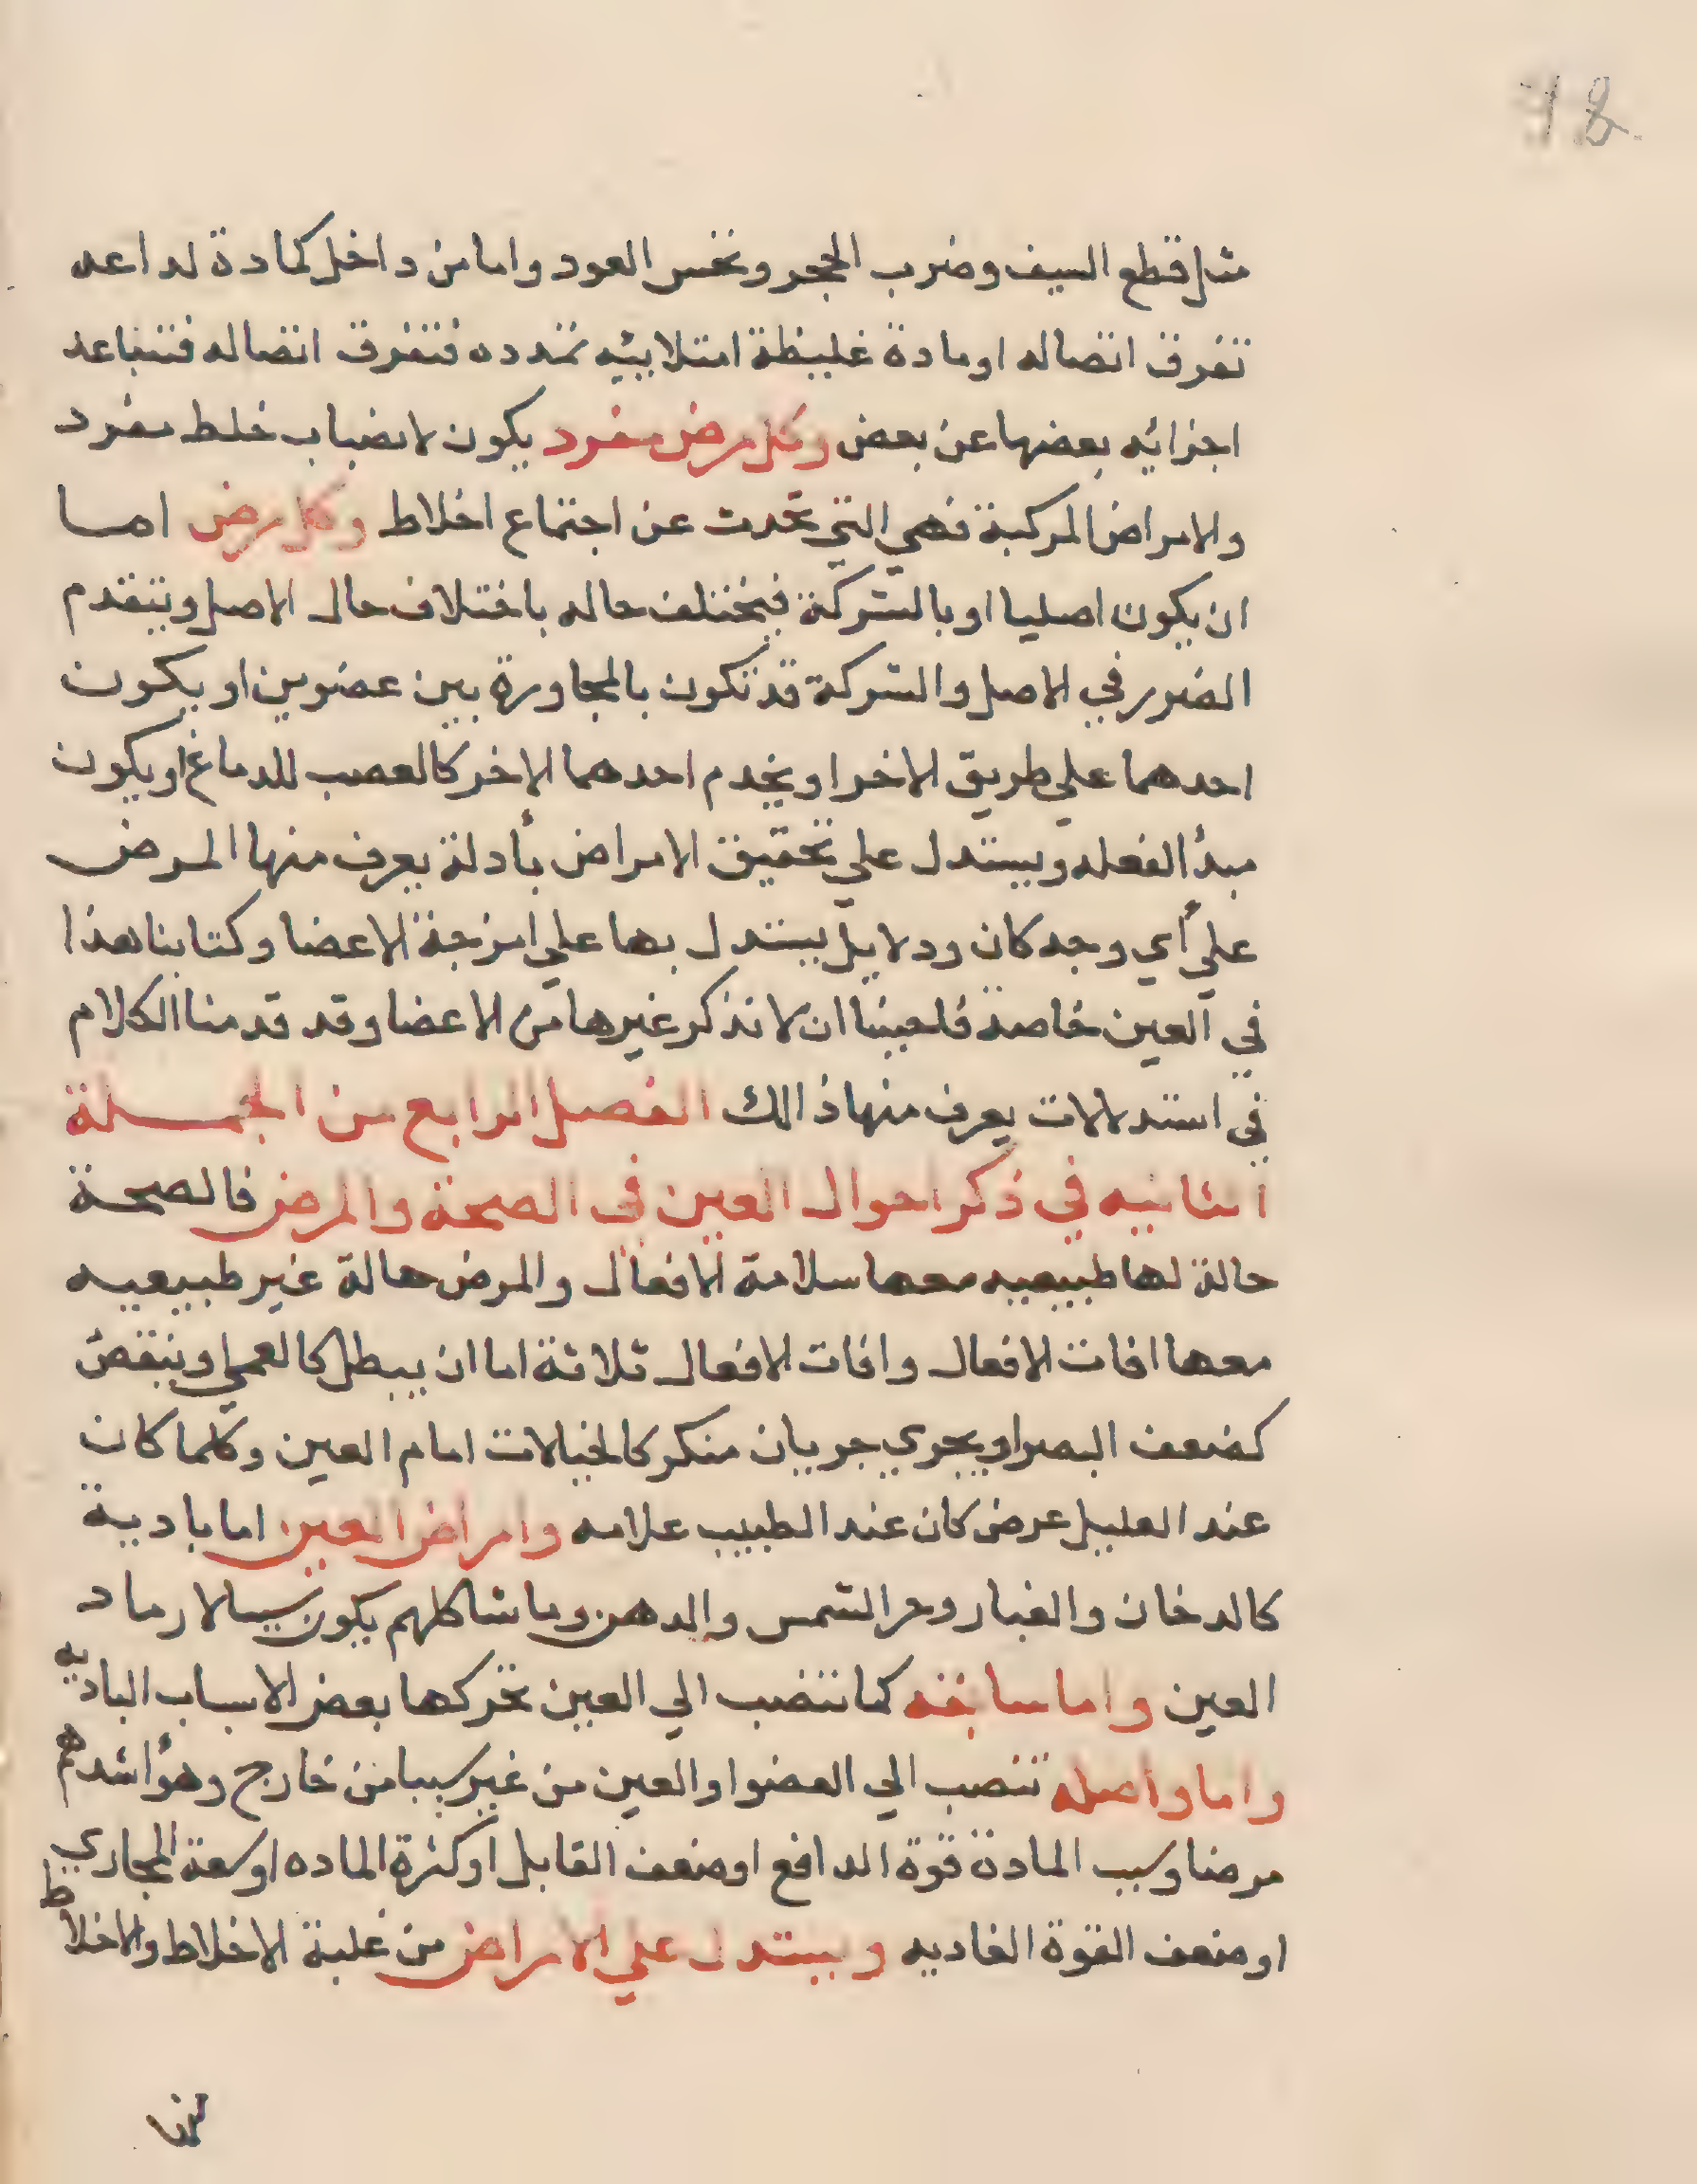 18
مثل قطع السيف وضرب الحجر ونخس العود واما من داخل كمادة لداعه
تفرق اتصاله اومادة غليظة امتلائيه تمدده فتفرق اتصاله فتتباعد
اجزائه بعضها عن بعض وكل مرض مفرد يكون لانصباب خلط مفرد
والامراض المركبة فهي التي تحدث عن اجتماع اخلاط وكل مرض اما
ان يكون اصليا او بالشركة فيختلف حاله باختلاف حال الاصل ويتقدم
الضرر في الاصل والشركة قد تكون بالمجاورة بين عضوين او يكون
احدهما علي طريق الاخر او يخدم احدهما الاخر كالعصب للدماغ او يكون
مبدأ الفعله ويستدل علي تحقيق الامراض بأدلة يعرف منها المرض
علي أي وجه كان ودلايل يستدل بها علي امزجة الاعضا وكتابنا هذا
في العين خاصة ان لا نذكر غيرها من الاعضا وقد قدمنا الكلام
في استدلالات يعرف منها ذالك الفصل الرابع من الجملة
الثانيه في ذكر احوال العين في الصحة والمرض فالصحة
حالة لها طبيعيه معها سلامة الافعال والمرض حالة غير طبيعيه
معها افات الافعال وافات الافعال ثلاثة اما ان يبطل كالعمي او ينقص
كضعف البصر او يجري جريان منكر كالخيالات امام العين وكلما كان
عند العليل عرض كان عند الطبيب علامه وامراض العين اما بادية
كالدخان والغبار وحر الشمس والدهن وما شاكلهم يكون سببا لارماد
العين واما سابقه كما تنصب الي العين تحركها بعض الاسباب الباديه
واما واصله تنصب الي العضو او العين من غير سببا من خارج وهو أشدهم
مرضا وسبب المادة قوة الدافع او ضعف القابل او كثرة الماده او سعة المجاري
او ضعف القوة الغاديه ويستدل علي الامراض من غلبة الاخلاط والاخلاط